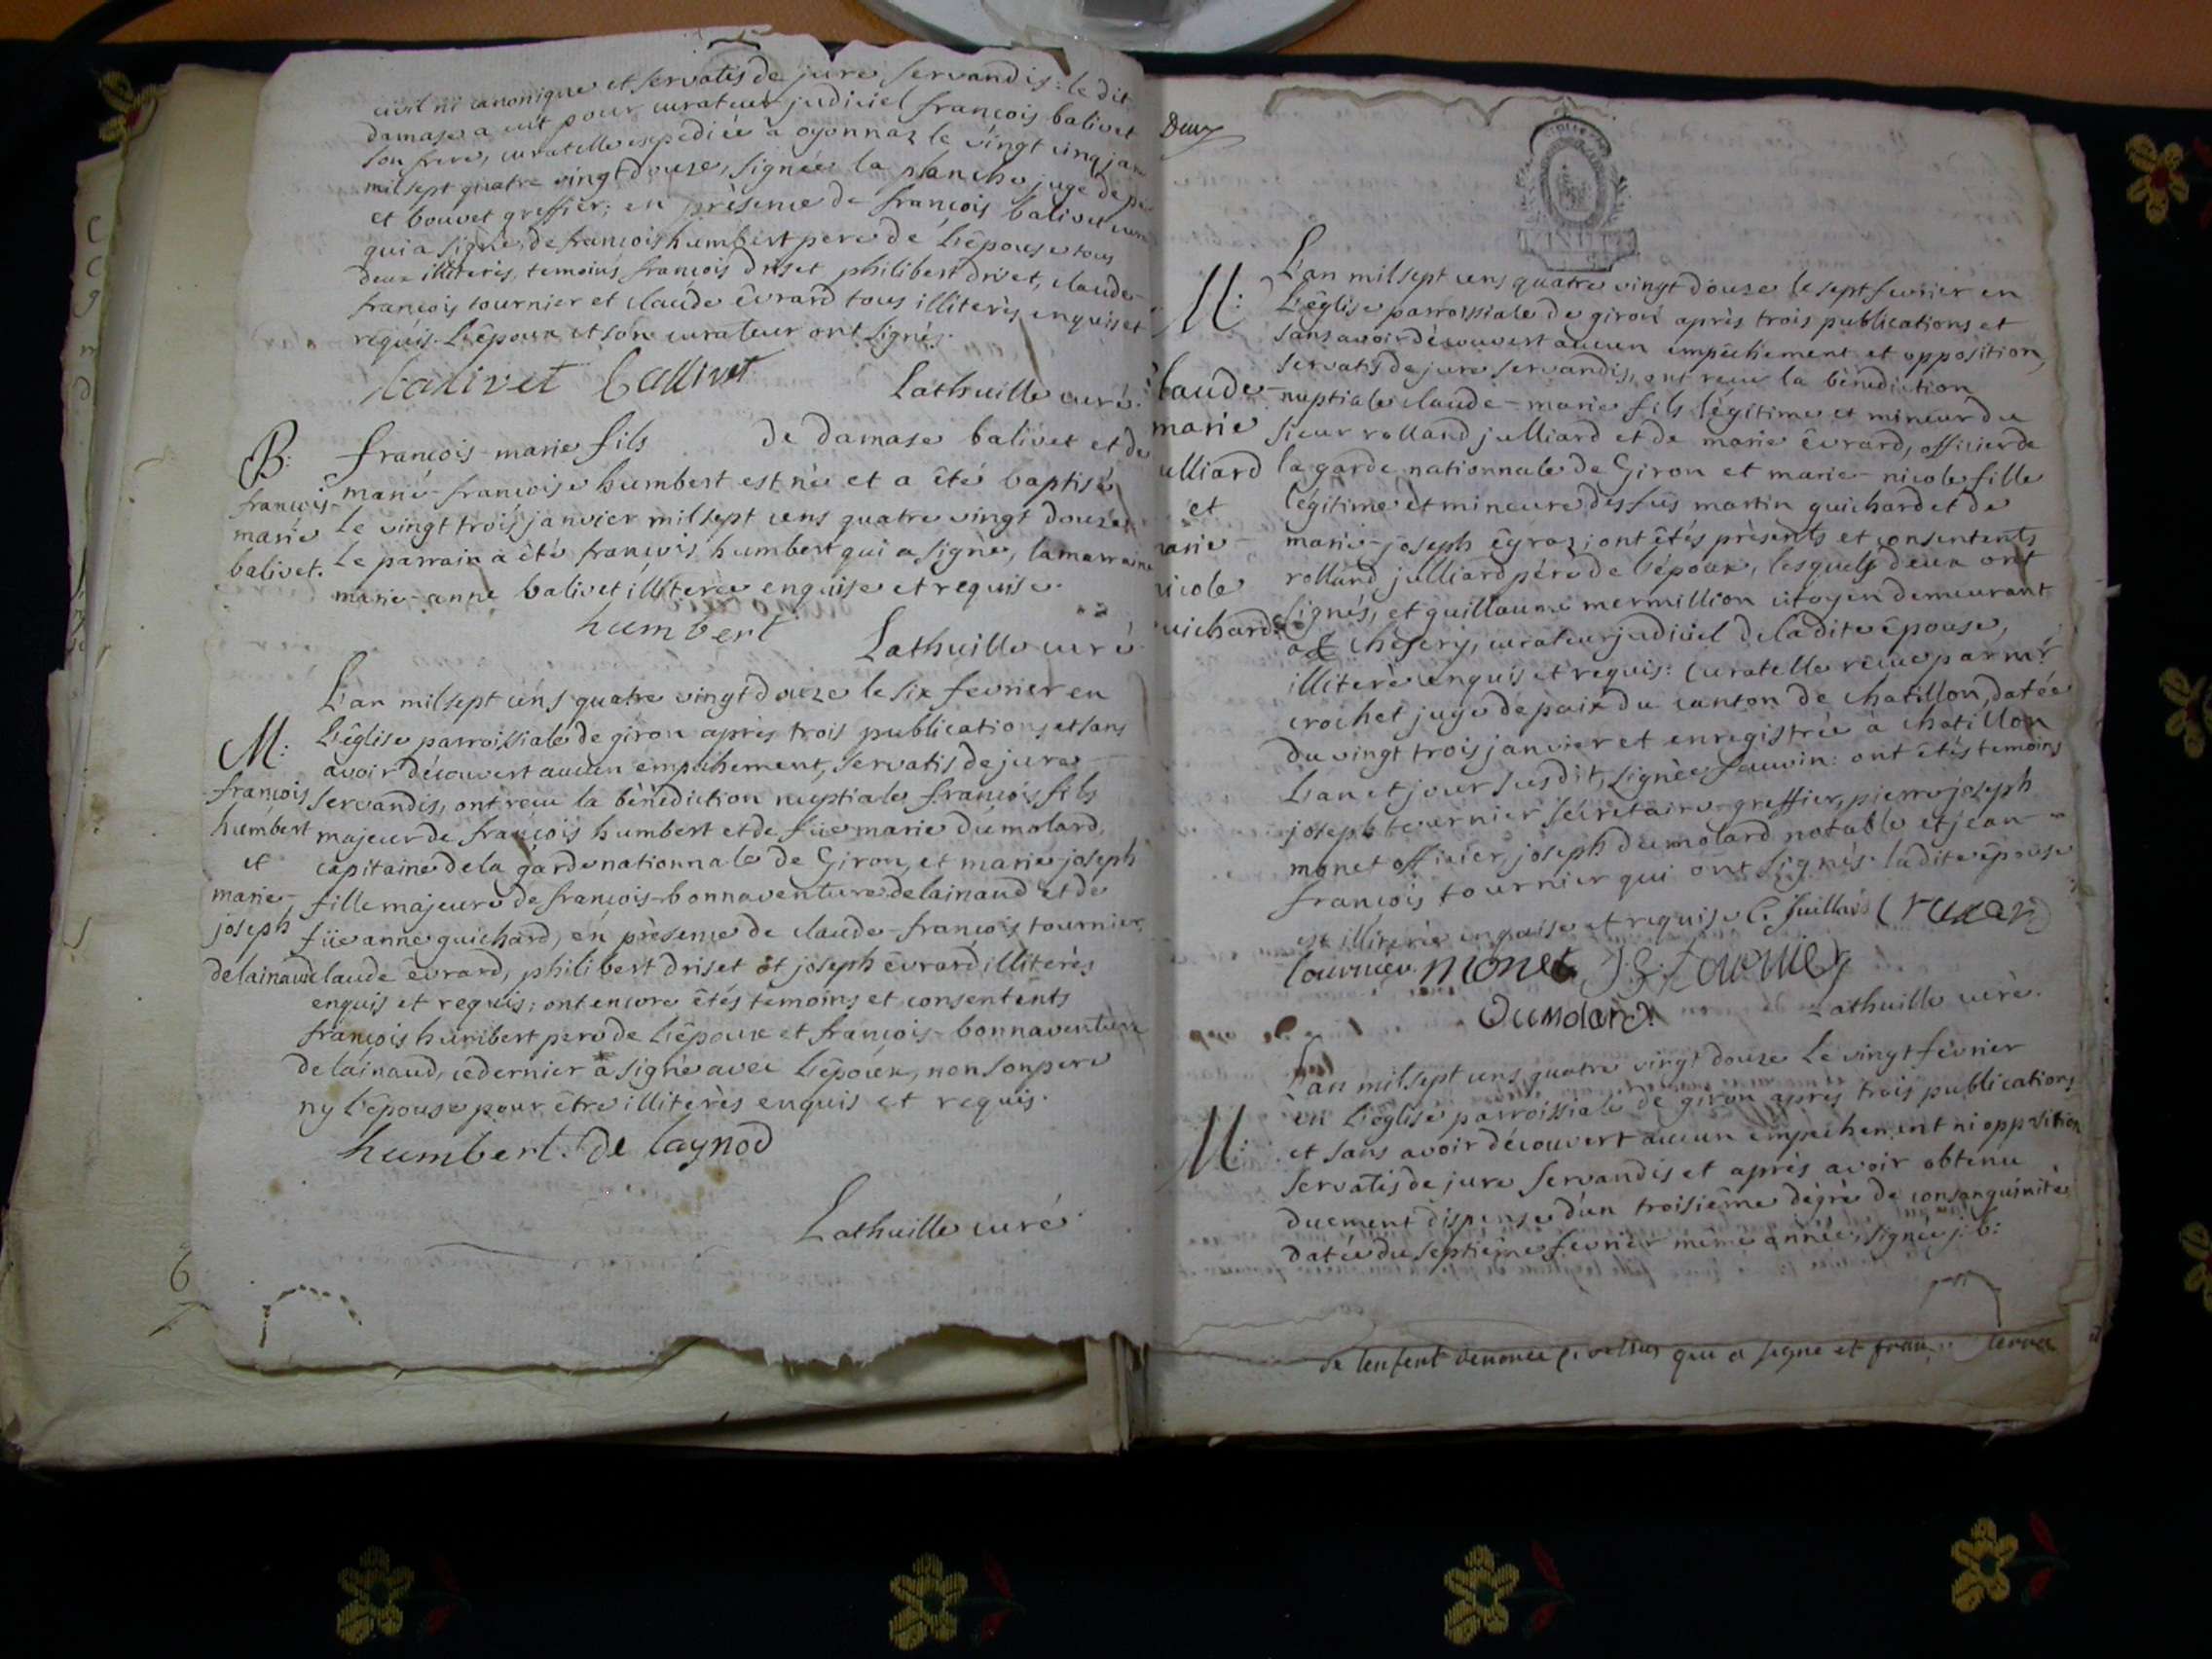 civil ni canonique et servatis de jure servandis: le dit
damase a eut pour curateur judiciel françois balivet
son frere, curatelle expediée à oyonnaz le vingt cinq jan
mil sept quatre vingt douze, signée la planche juge de
et bouvet greffier; en présence de françois balivet
qui a signé, de françois humbert pere de l'épouse tous
deux illiterès, temoins françois driset philibert driset, claude-
françois tournier et claude êvrard tous illiterès enquis et
requis. L'êpoux et son curateur ont signés.
balivet ballivet
Lathuille curé.
B: françois-marie fils de damase balivet et de
françois- marie-françoise humbert est né et a êté baptisé
marie le vingt trois janvier mil sept cens quatre vingt douze
balivet. Le parrain a êté françois humbert qui a signé, la marraine
marie-anne balivet illiterée enquise et requise.
humbert
Lathuille curé
L'an mil sept cens quatre vingt douze le six fevrier en
M: L'êglise parroissiale de giron après trois publications et sans
avoir découvert aucun empêchement, servatis de jure
françois servandis, ont reçu la bénédiction nuptiale françois fils
humbert majeur de françois humbert et de füe marie dumolard,
et capitaine de la garde nationnale de Giron, et marie-joseph
marie- fille majeure de françois-bonnaventure delainaud et de
joseph füe anne guichard, en présence de claude-françois tournier
delainaud claude êvrard, philibert driset et joseph êvrard illiterès
enquis et requis; ont encore êtés temoins et consentents
françois humbert pere de l'êpoux et françois-bonnaventure
delainaud, ce dernier a signé avec l'êpoux, non son pere
ny l'êpouse pour être illiterès enquis et requis.
humbert. de laynod
Lathuille curé
6
Deux
L'an mil sept cens quatre vingt douze le sept fevrier en
M: L'êglise parroissiale de giron après trois publications et
sans avoir découvert aucun empêchement et opposition,
servatis de jure servandis, ont reçu la bénédiction
claude- nuptiale claude-marie fils légitime et mineur du
marie sieur rolland julliard et de marie êvrard, officier de
ulliard la garde nationnale de Giron et marie-nicole fille
et légitime et mineure des füs martin guichard et de
marie- marie-joseph êgraz; ont êtés présents et consentents
nicole rolland julliard pére de l'époux, lesquels deux ont
uichard signés, et guillaume mermillion citoyen demeurant
a chéfery, curateur judiciel de ladite êpouse,
illiterè enquis et requis: curatelle reçue par mr.
crochet juge de paix du canton de chatillon, datée
du vingt trois janvier et enregistrée à chatillon
L'an et jour susdit, signée fauvin: ont êtés temoins
joseph tournier sécretaire-greffier, pierre joseph
monet officier, joseph dumolard notable et jean-
françois tournier qui ont signés. ladite êpouse
est illiterée enquise et requise
tournier monet J. f. tournier
Dumolard
Lathuille curé.
L'an mil sept cens quatre vingt douze Le vingt fevrier
en L'êglise parroissiale de giron après trois publications
M: et sans avoir découvert aucun empechement ni opposition
servatis de jure servandis et après avoir obtenu
duement dispense d'un troisième dégré de consanguinité
datée du septième fevrier même année, signée j: b:
de lenfent denomée qui a signé et